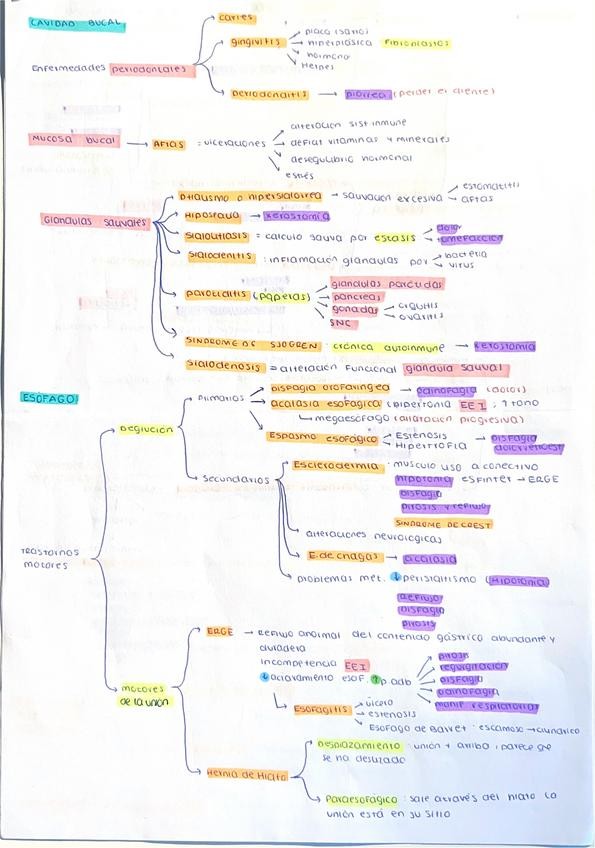 CAVIDAD BUCAL
caries
gingivitis
placa (sarro)
hiperplásica Fibroblastos
hormona
Herpes
Enfermedades periodontales
periodontitis → piorrea (perder el diente)
Mucosa bucal → AFTAS : ulceraciones
alteración sist inmune
deficit vitaminas y minerales
desequilibrio hormonal
estrés
Glandulas salivales
Ptialismo o hipersialorrea → salivación excesiva
estomatitis
aftas
Hiposialia → xerostomía
Sialolitiasis = calculo saliva por estasis
dolor
tumefacción
Sialodenitis : inflamación glandulas por
bacteria
virus
parotiditis (paperas)
glandulas parótidas
pancreas
gonadas
orquitis
ovaritis
SNC
SINDROME DE SJOGREN : crónica autoinmune → xerostomia
Sialodenosis = alteración funcional glandula salival
ESÓFAGO
Trastornos motores
Deglución
Primarios
Disfagia orofaringea → odinofagia (dolor)
acalasia esofágica (hipertonía EEI : ↑ tono
megaesófago (dilatación progresiva)
Espasmo esofágico
Estenosis
Hipertrofia
Disfagia
Secundarios
Esclerodermia : musculo liso a conectivo
hipotonia esfinter → ERGE
Disfagia
pirosis y reflujo
SINDROME DE CREST
alteraciones neurologicas
E. de chagas → acalasia
problemas met. ↓ peristaltismo (Hipotonia)
Reflujo
Disfagia
pirosis
motores de la unión
ERGE → Reflujo anormal del contenido gástrico abundante y
duradera
Incompetencia EEI
↓ aclaramiento esof. ↑ p adb
pirosis
regurgitación
disfagia
odinofagia
manif respiratorias
Esofagitis
úlcera
estenosis
Esofago de Barret : escamoso → cilíndrico
Hernia de Hiato
Desplazamiento : unión + arriba, parece que
se ha deslizado
Paraesofágico : sale através del hiato la
unión está en su sitio